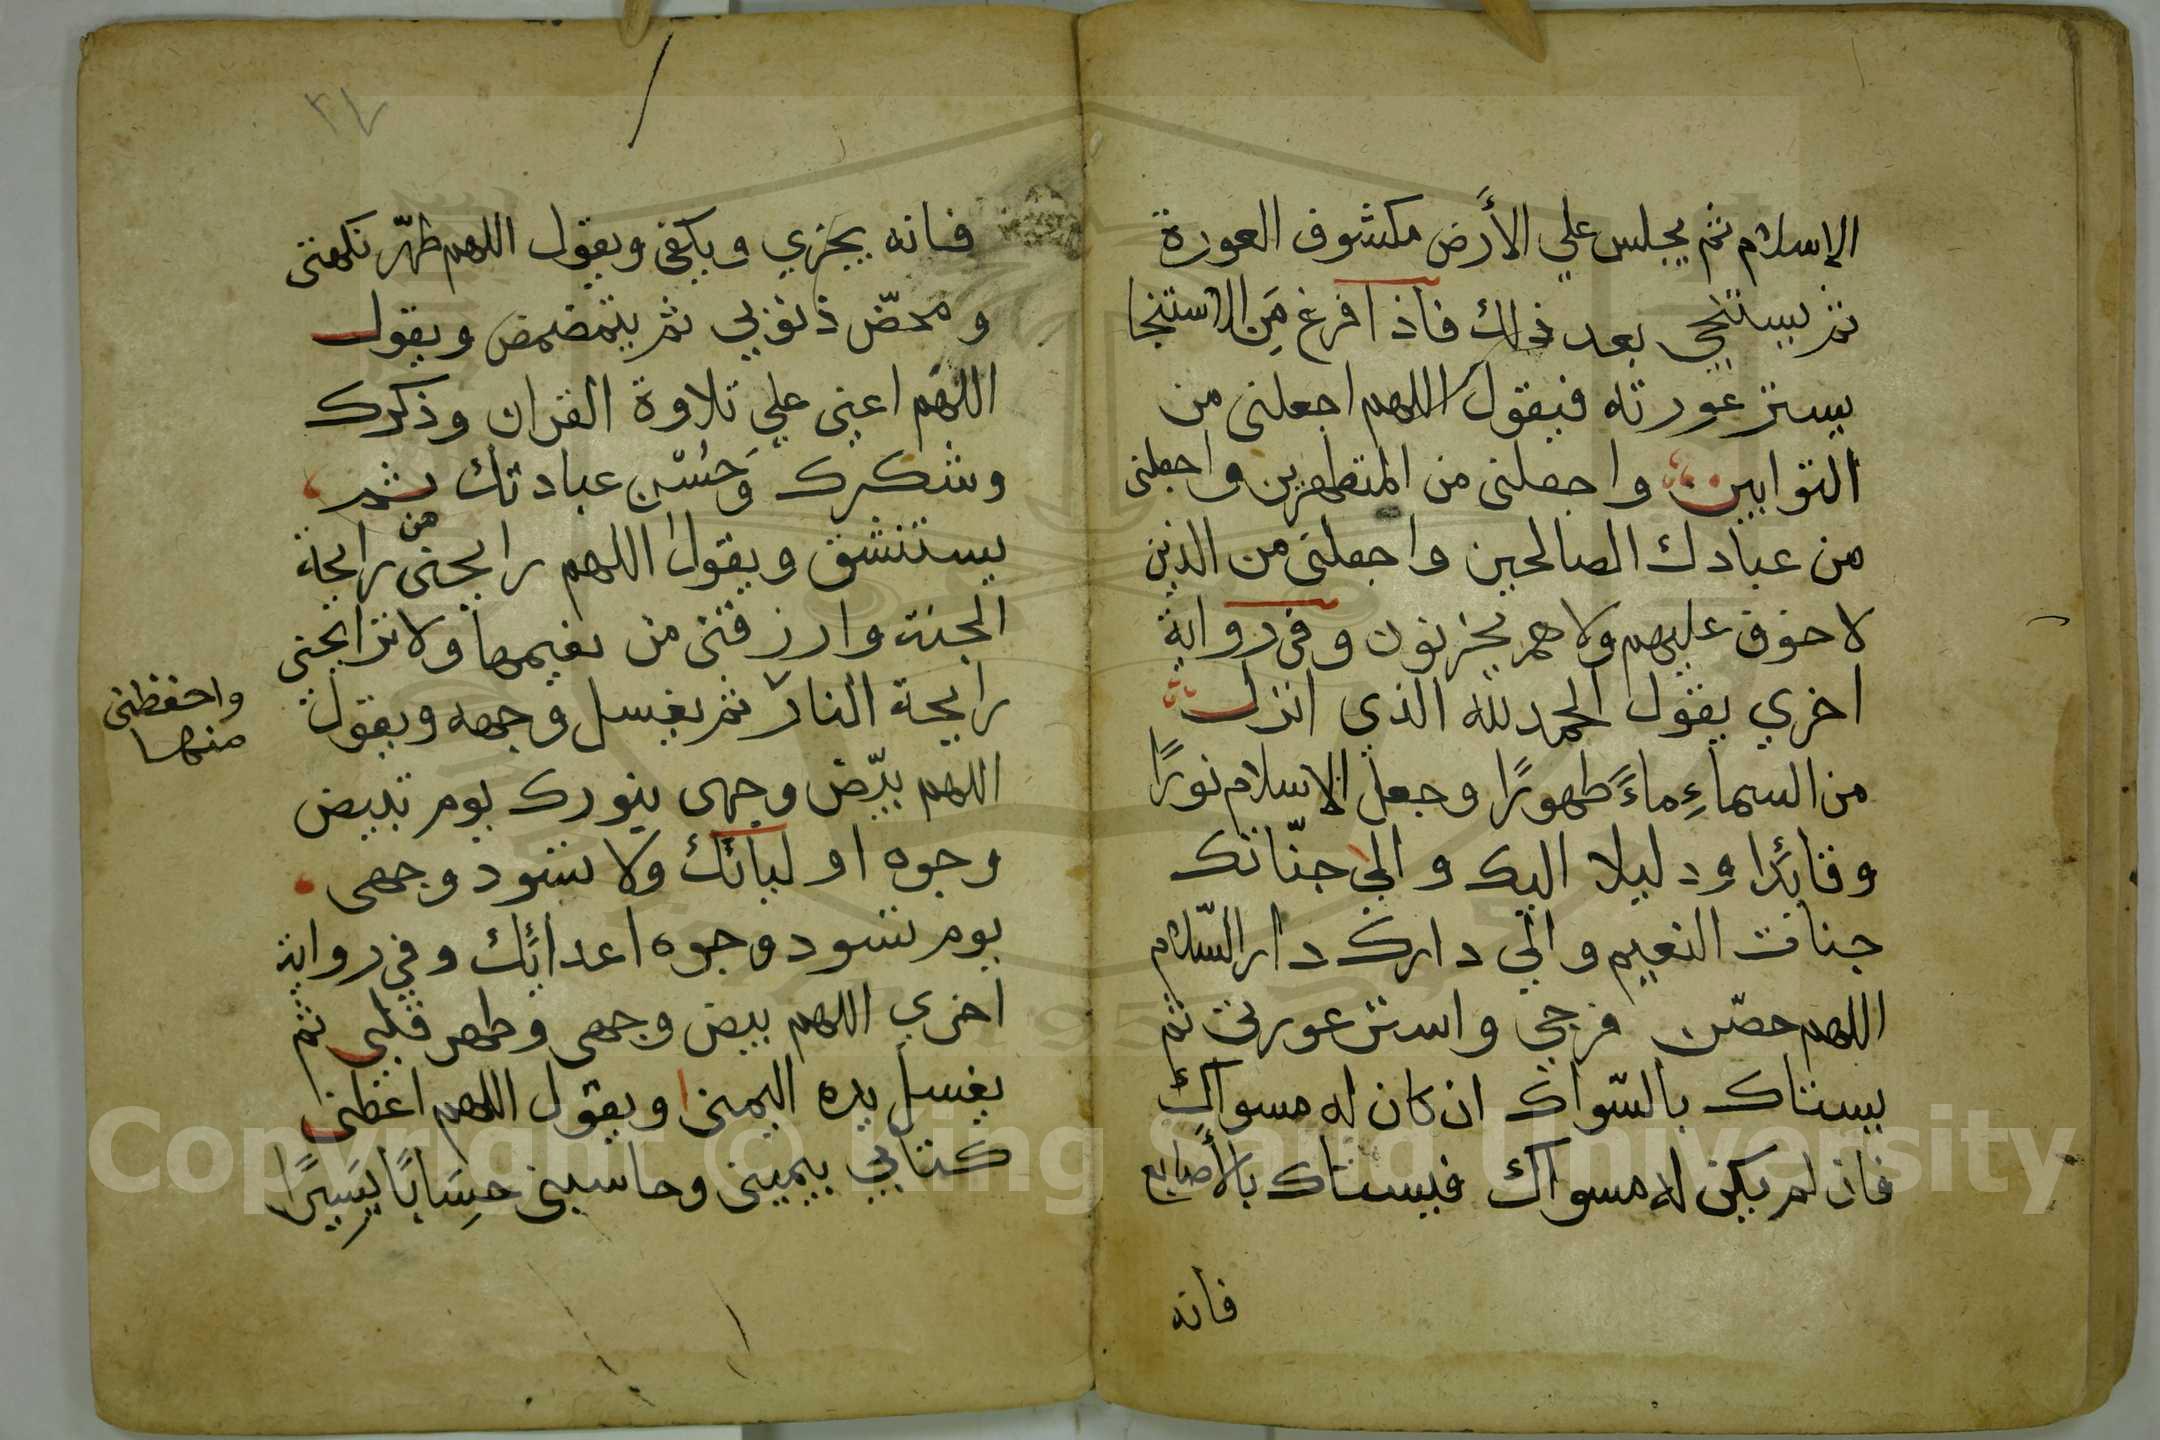 الإسلام ثم يجلس علي الأرض مكشوف العورة
ثم يستنجي بعد ذلك فاذا فرغ من الاستنجا
يستر عورته فيقول اللهم اجعلني من
التوابين واجعلني من المتطهرين واجعلني
من عبادك الصالحين واجعلني من الذين
لا خوف عليهم ولا هم يحزنون وفي رواية
اخري يقول الحمد لله الذي انزل
من السماءِ ماءً طهورًا وجعل الاسلام نورًا
وقائدا ودليلا اليك والي جنّاتك
جنات النعيم والي دارك دار السّلام
اللهم حصّن فرجي واستر عورتي ثم
يستاك بالسّواك ان كان له مسواك
فان لم يكن له مسواك فيستاك بالأصابع
فانه
٢٧
فانه يجزي ويكفي ويقول اللهم طهّر نكهتي
ومحّض ذنوبي ثم يتمضمض ويقول
اللهم اعني علي تلاوة القران وذكرك
وشكرك وحُسْن عبادتك ثم
يستنشق ويقول اللهم رايحني من رايحة
الجنة وارزقني من نعيمها ولا ترايحني
رايحة النار ثم يغسل وجهه ويقول
واحفظني
منها
اللهم بيّض وجهي بنورك يوم تبيض
وجوه اوليائك ولا تسود وجهي
يوم تسود وجوه اعدائك وفي رواية
اخري اللهم بيض وجهي وطهر قلبي ثم
يغسل يده اليمني ويقول اللهم اعطني
كتابي بيميني وحاسبني حِسَابًا يَسيرًا